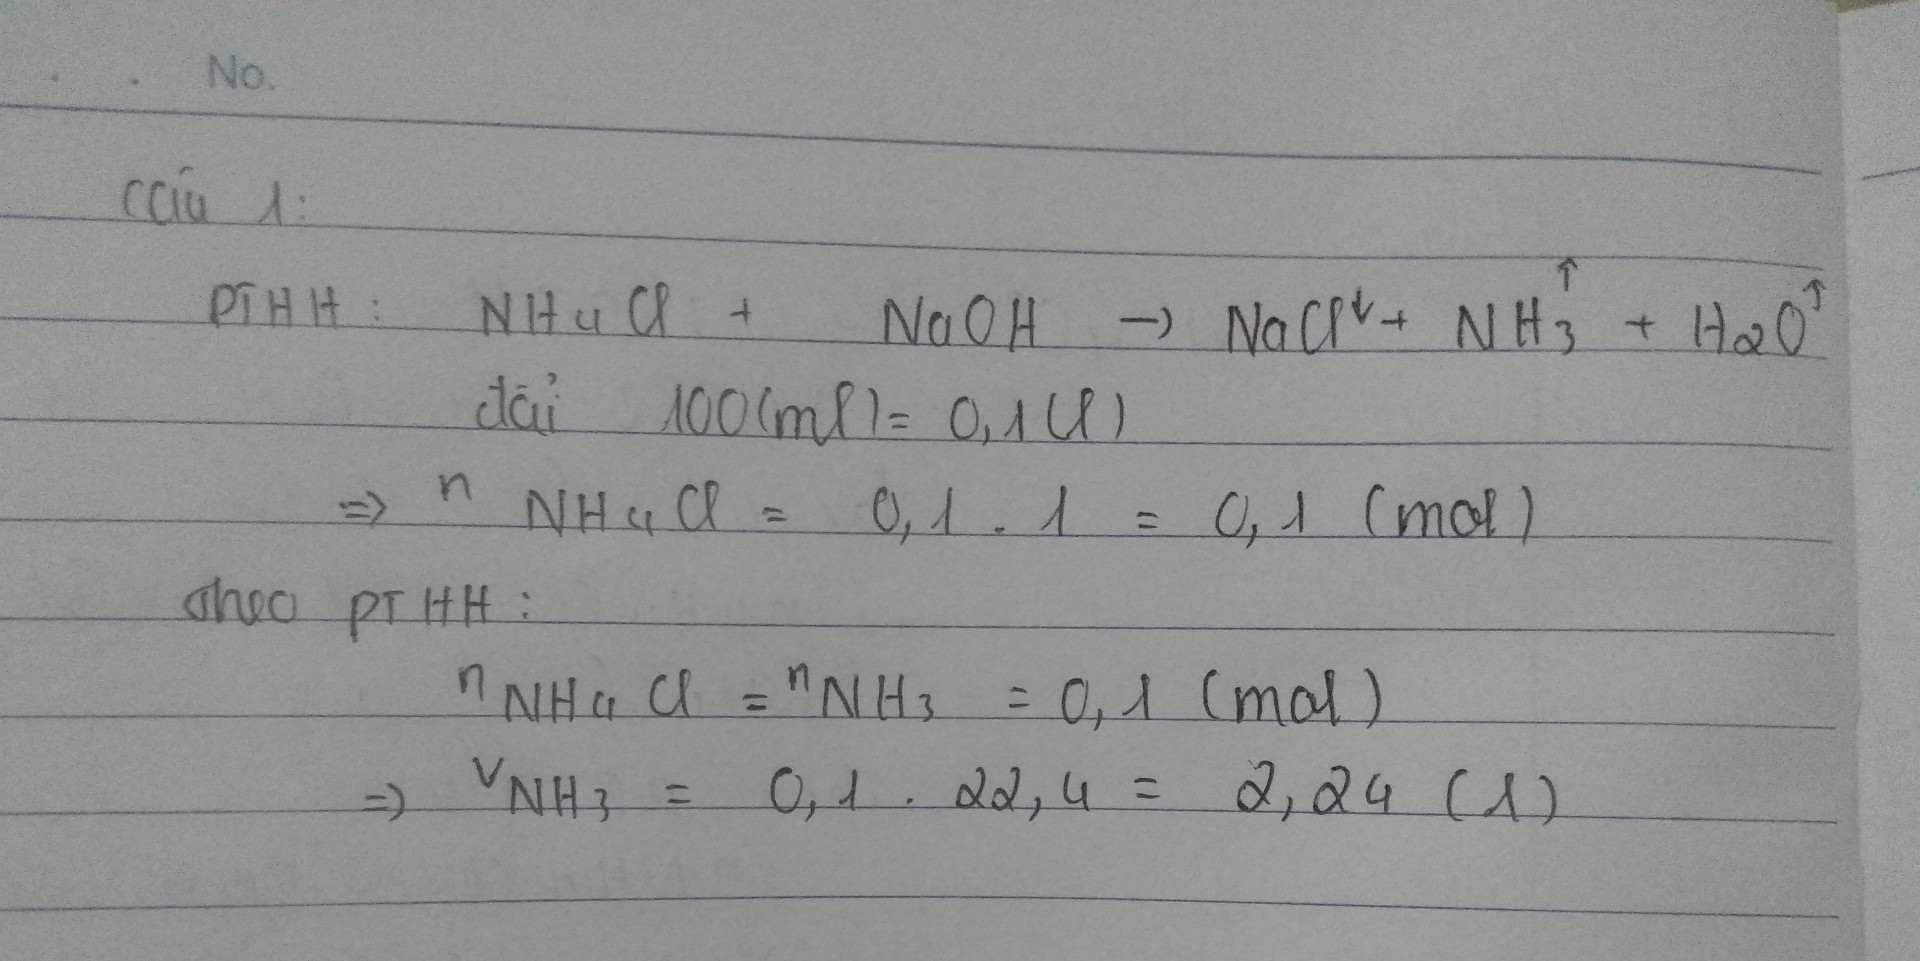 No.
Câu 1:
PTHH: NH4Cl + NaOH → NaCl↓ + NH3↑ + H2O↑
đổi 100(ml) = 0,1(l)
=> n NH4Cl = 0,1 . 1 = 0,1 (mol)
theo PTHH:
nNH4Cl = nNH3 = 0,1 (mol)
=> VNH3 = 0,1 . 22,4 = 2,24 (l)